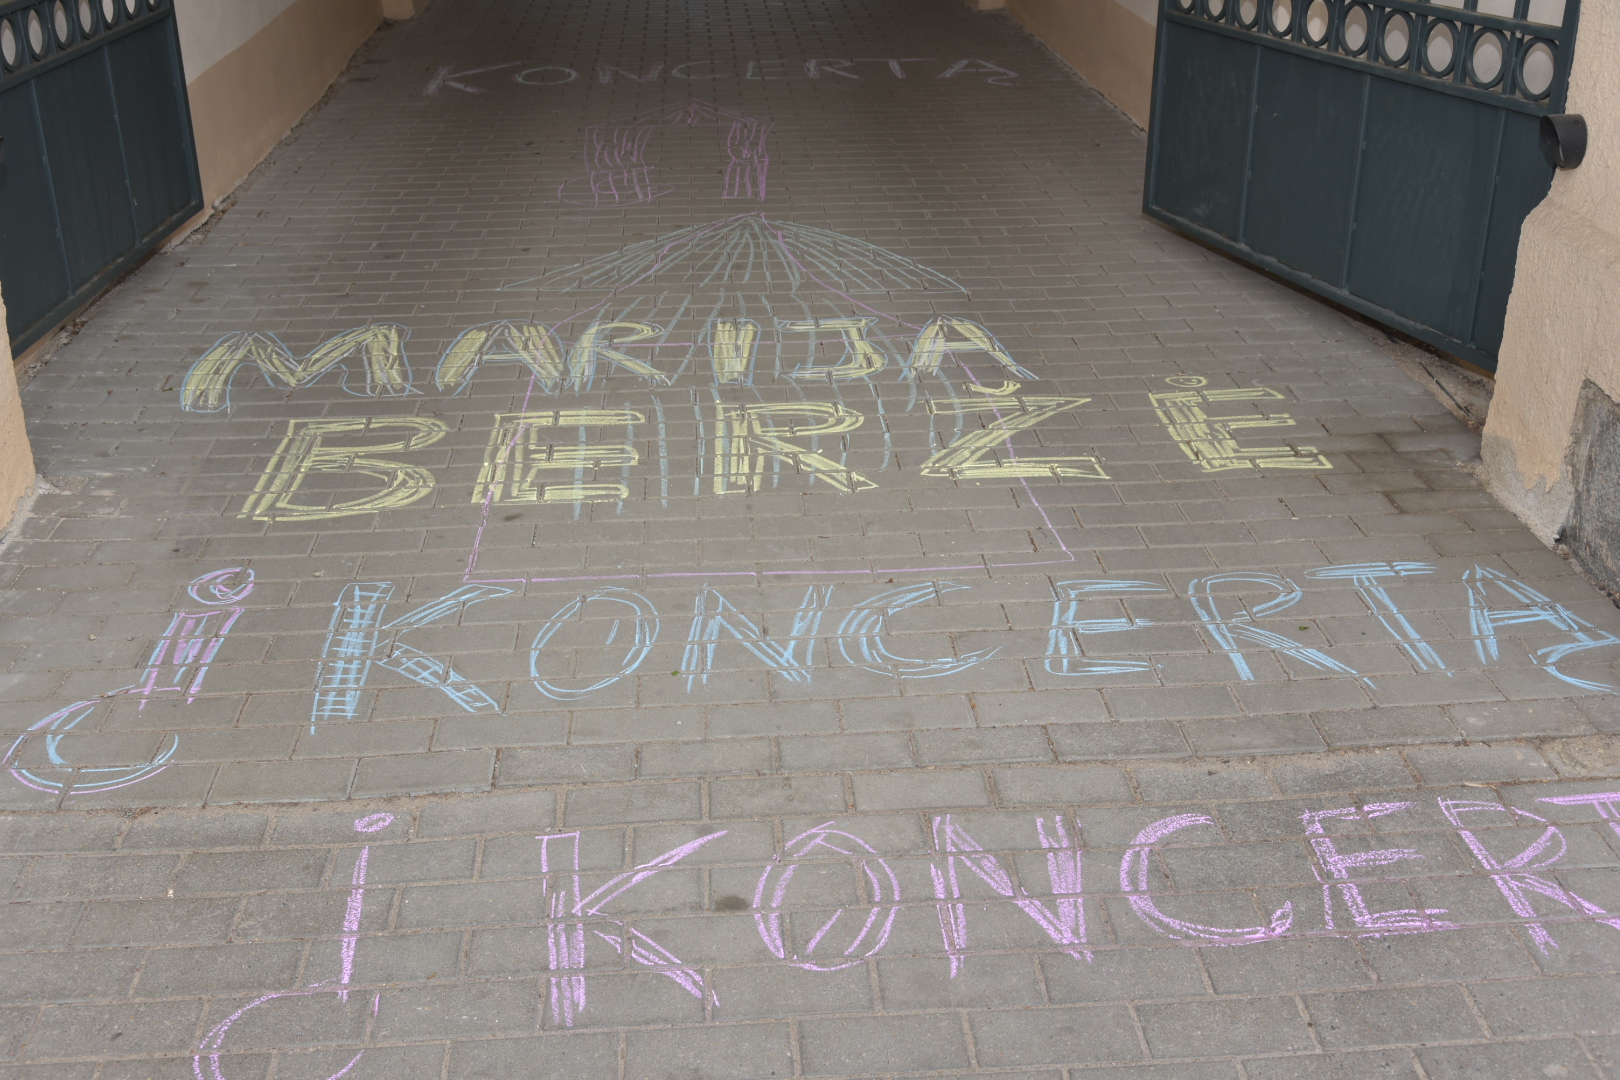 KONCERTĄ
MARIJA
BERŽĖ
Į KONCERTĄ
Į KONCERT